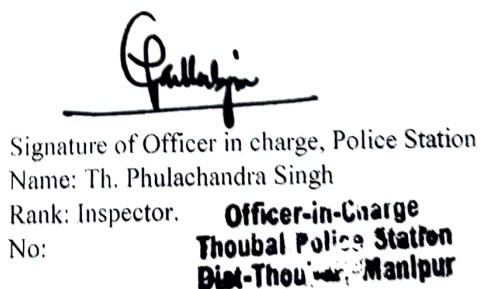 Signature of Officer in charge, Police Station
Name: Th. Phulachandra Singh
Rank: Inspector.
No:
Officer-in-Charge
Thoubal Police Station
Dist-Thoubal, Manipur